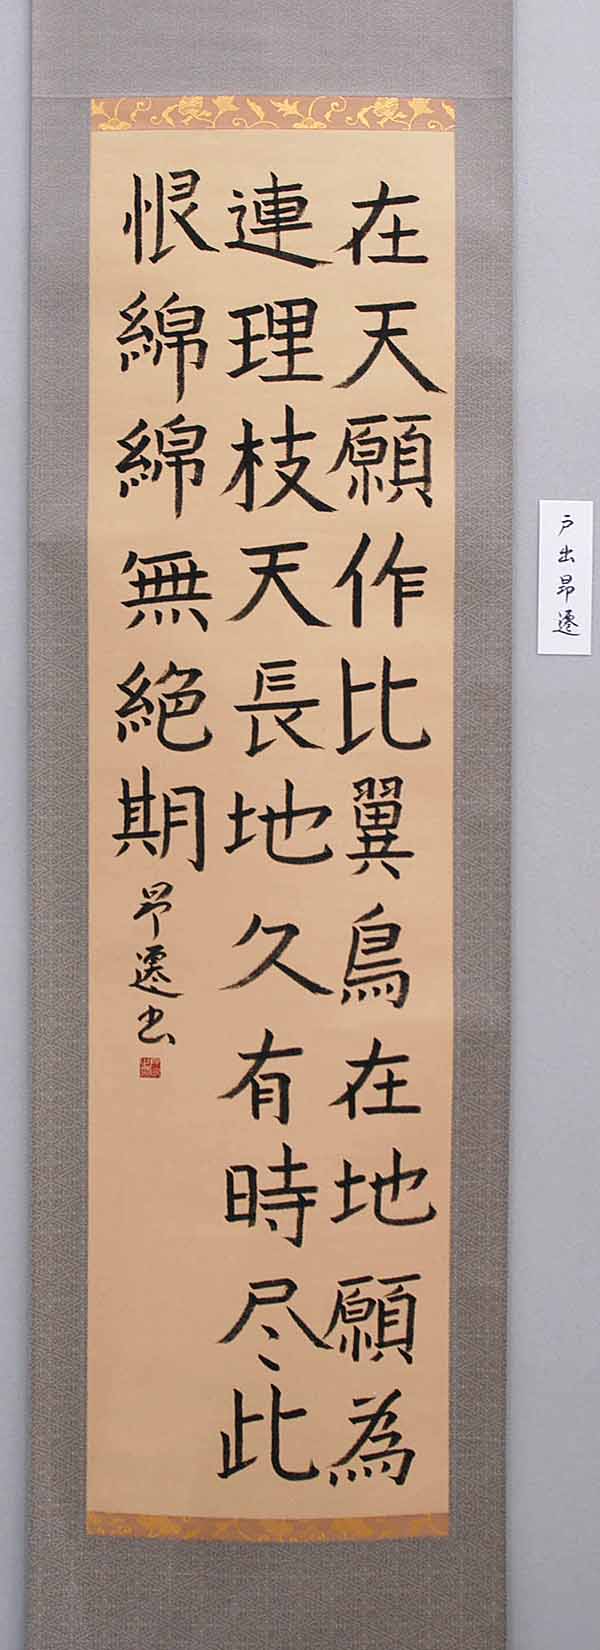 在天願作比翼鳥在地願為
連理枝天長地久有時尽此
恨綿綿無絶期
昻遷書
戸出昻遷